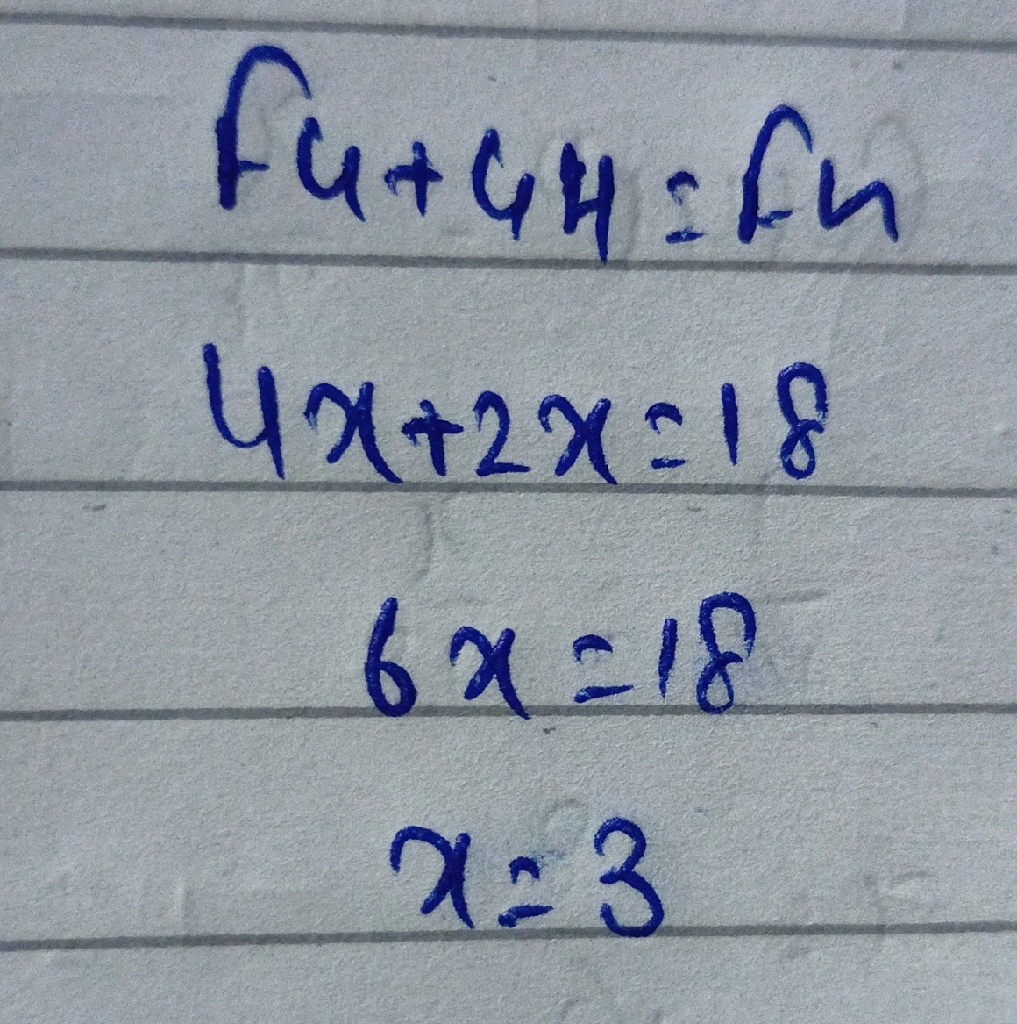 FG+GH=FH
4x+2x=18
6x=18
x=3